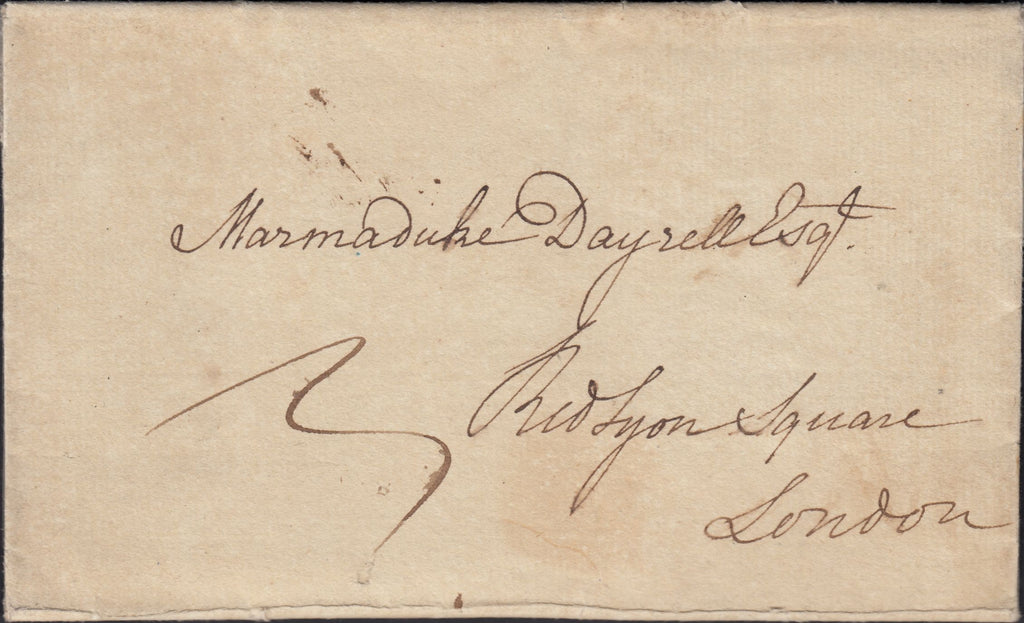 Marmaduke Dayrell Esqr.
3
Red Lyon Square
London